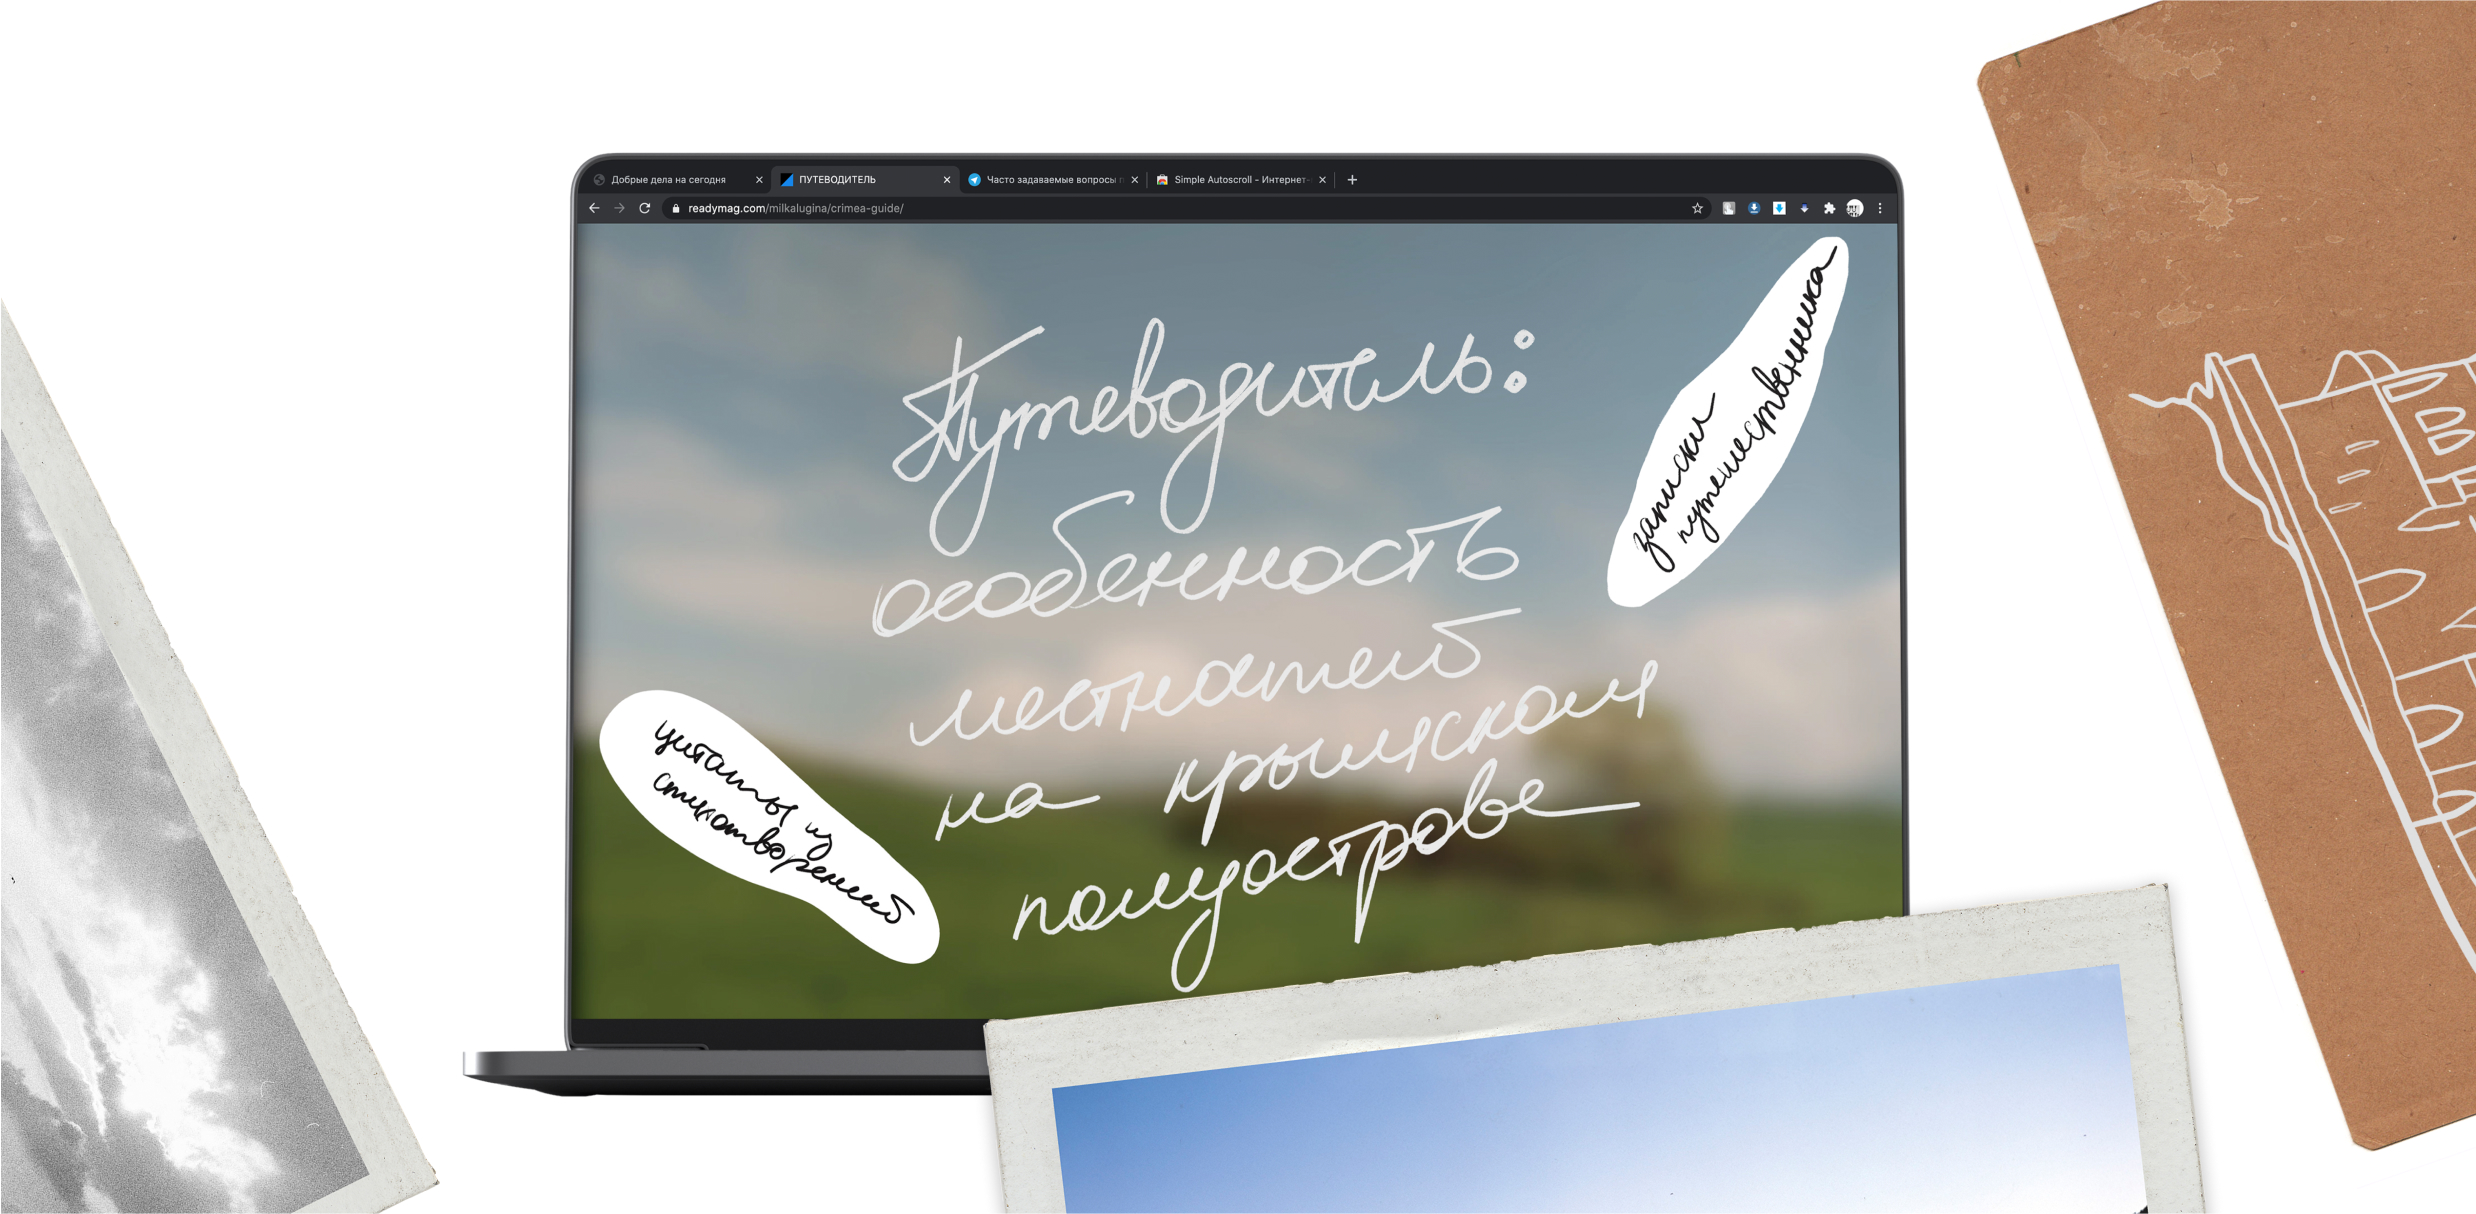 Добрые дела на сегодня
ПУТЕВОДИТЕЛЬ
Часто задаваемые вопросы п
Simple Autoscroll - Интернет-
readymag.com/milkalugina/crimea-guide/
Путеводитель:
особенность
местностей
на крымском
полуострове
записки
путешественника
цитаты из
стихотворений